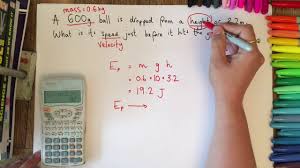 mass = 0.6kg
A 600g ball is dropped from a height
What is its speed just before it hits the
velocity
Ep = m g h
= 0.6 × 10 × 3.2
= 19.2 J
Ep →